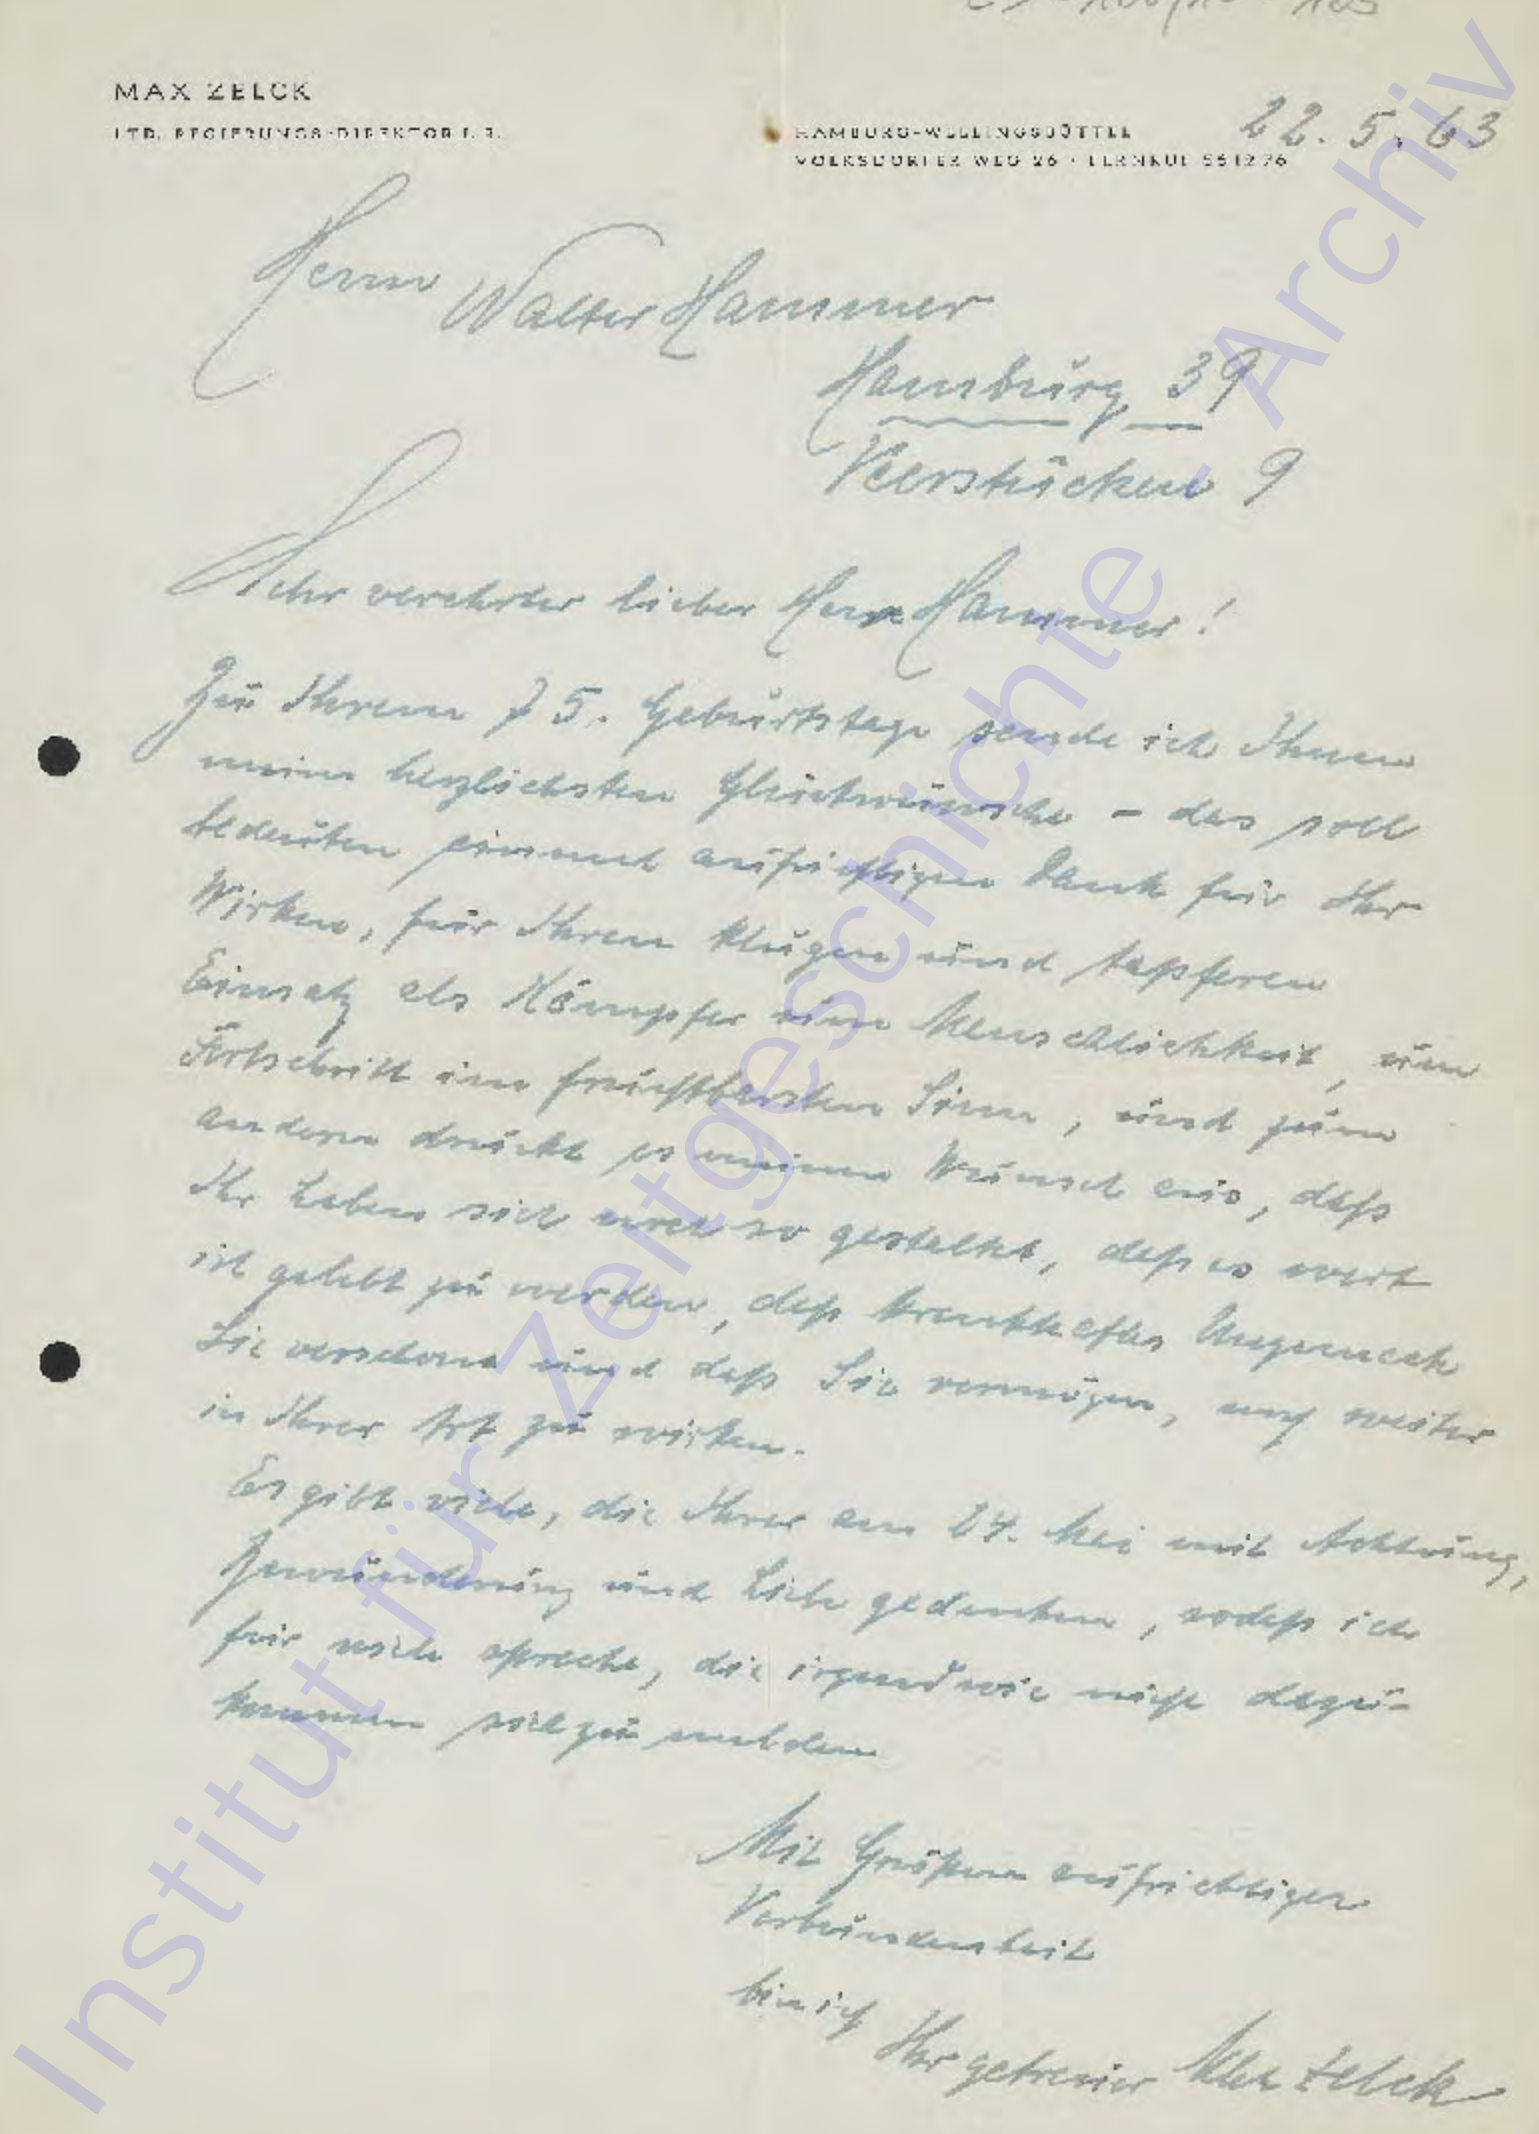 MAX ZELCK
LTD. REGIERUNGS-DIREKTOR I. R.
HAMBURG-WELLINGSBÜTTEL
VOLKSDORFER WEG 26 · FERNRUF 56 12 76
22. 5. 63
Herrn
Walter Hammer
Hamburg 39
Veerstücken 9
Sehr verehrter lieber Herr Hammer!
Zu Ihrem 75. Geburtstage sende ich Ihnen
meine herzlichsten Glückwünsche – das soll
bedeuten einmal aufrichtigen Dank für Ihr
Wirken, für Ihren klugen und tapferen
Einsatz als Kämpfer um Menschlichkeit, um
Fortschritt im fruchtbarsten Sinn, und zum
andern drückt es meinen Wunsch aus, daß
Ihr Leben sich so gestaltet, daß es wert
ist gelebt zu werden, daß krankhaftes Ungemach
Sie verschont und daß Sie vermögen, weiter
in Ihrer Art zu wirken.
Es gibt viele, die Ihrer am 24. Mai mit Achtung,
Bewunderung und Liebe gedenken, sodaß ich
für viele spreche, die irgendwie nicht dazu-
kommen sich zu melden
Mit Grüßen aufrichtiger
Verbundenheit
bin ich
Ihr getreuer Max Zelck
Institut für Zeitgeschichte - Archiv